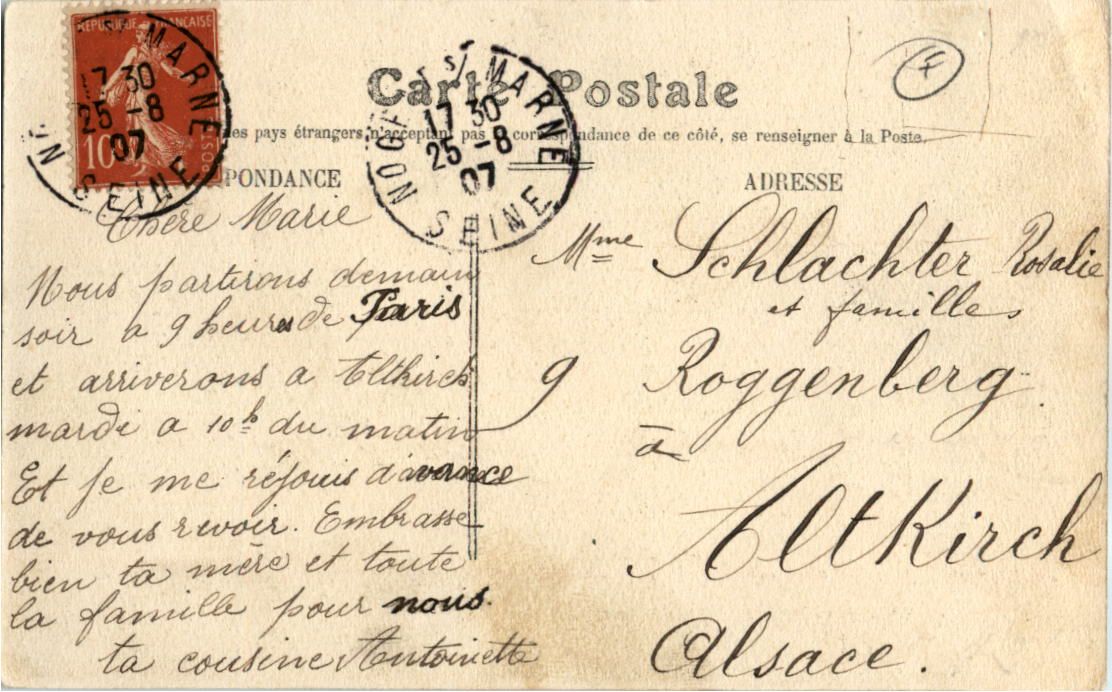 RÉPUBLIQUE FRANÇAISE
10
POSTES
NOGENT S/ MARNE
17 30
25 -8
07
SEINE
Carte Postale
NOGENT S/ MARNE
17 30
25 -8
07
SEINE
les pays étrangers n'acceptant pas la correspondance de ce côté, se renseigner à la Poste.
PONDANCE
Chère Marie
Nous partirons demain
soir a 9 heures de Paris
et arriverons a Altkirch
mardi a 10h du matin
Et je me réjouis d'avance
de vous revoir. Embrasse
bien ta mère et toute
la famille pour nous.
ta cousine Antoinette
ADRESSE
Mme Schlachter Rosalie
et famille
9 Roggenberg
à
Altkirch
Alsace.